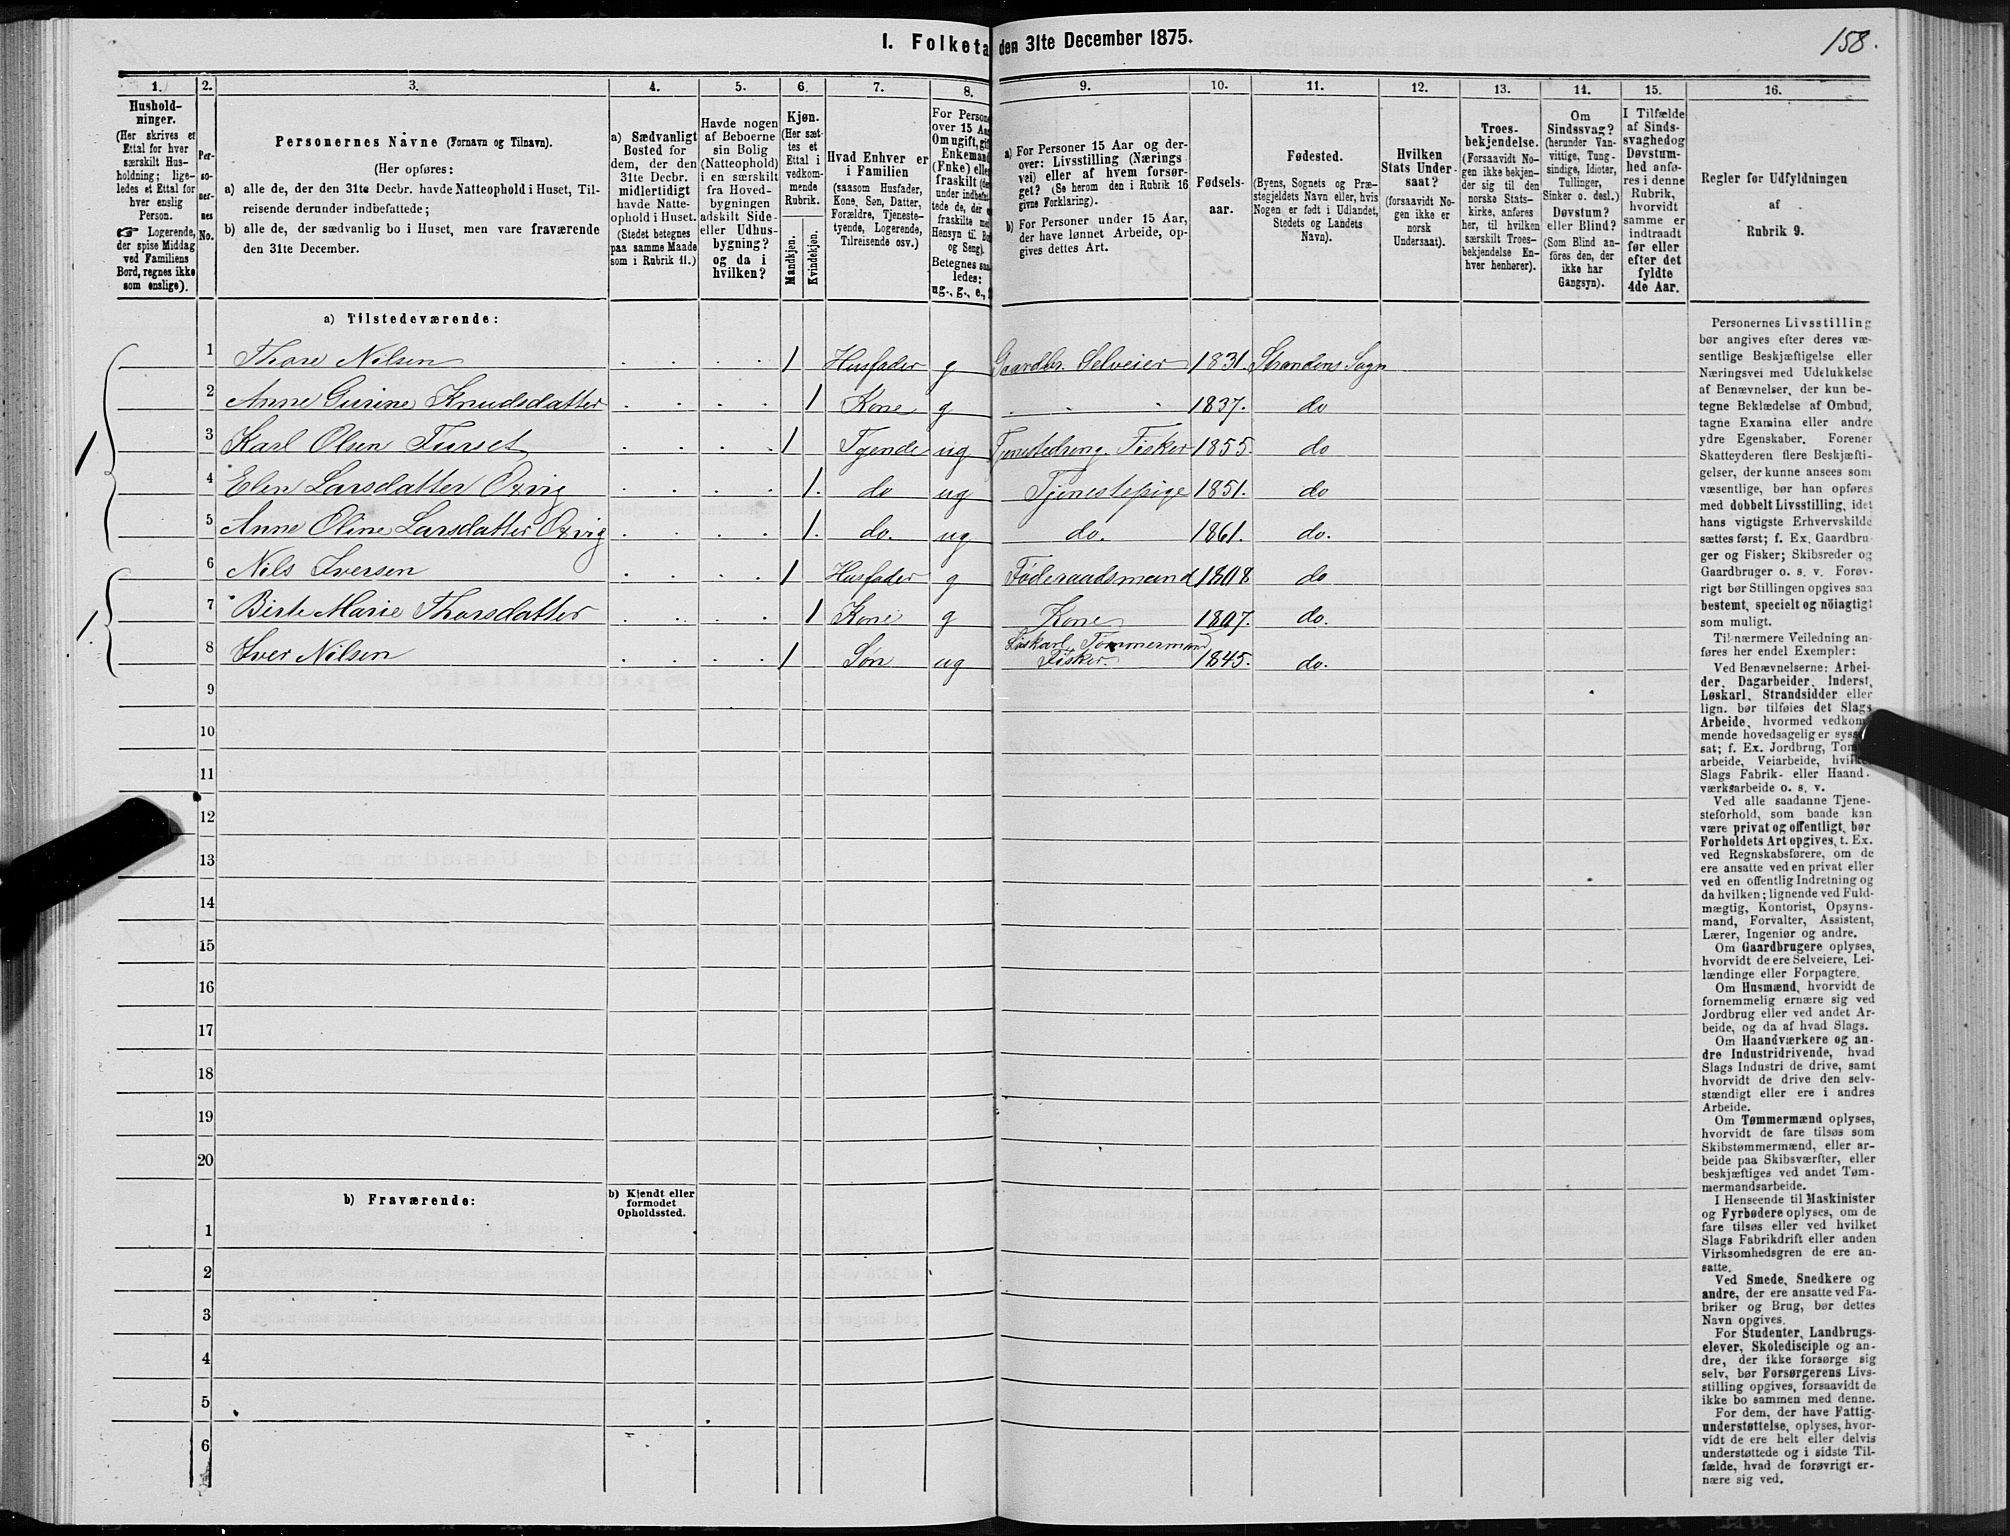 I. Folketa den 31te December 1875.
158.
1.
2.
3.
4.
5.
6.
7.
8.
9.
10.
11.
12.
13.
14.
15.
16.
Hushold-
ninger.
(Her skrives et
Ettal for hver
særskilt Hus-
holdning; lige-
ledes et Ettal for
hver enslig
Person.
☞ Logerende,
der spise Middag
ved Familiens
Bord, regnes ikke
som enslige).
Per-
so-
ner-
nes
No.
Personernes Navne (Fornavn og Tilnavn).
(Her opføres:
a) alle de, der den 31te Decbr. havde Natteophold i Huset, Til-
reisende derunder indbefattede;
b) alle de, der sædvanlig bo i Huset, men vare fraværende
den 31te December.
a) Sædvanligt
Bosted for
dem, der den
31te Decbr.
midlertidigt
havde Natte-
ophold i Huset.
(Stedet betegnes
paa samme Maade
som i Rubrik 11.)
Havde nogen
af Beboerne
sin Bolig
(Natteophold)
i en særskilt
fra Hoved-
bygningen
adskilt Side-
eller Udhus-
bygning?
og da i
hvilken?
Kjøn.
(Her sæt-
tes et
Ettal i
vedkom-
mende
Rubrik.
Mandkjøn.
Kvindekjøn.
Hvad Enhver er
i Familien
(saasom Husfader,
Kone, Søn, Datter,
Forældre, Tjeneste-
tyende, Logerende,
Tilreisende osv.)
For Persone
over 15 Aa
Om ugift, gif
Enkemand
(Enke) elle
fraskilt (de
under indbefat
tede de, der e
fraskilte me
Hensyn til Bo
og Seng).
Betegnes saa
ledes:
ug., g., e.,
a) For Personer 15 Aar og der-
over: Livsstilling (Nærings
vei) eller af hvem forsør-
get? (Se herom den i Rubrik 16
givne Forklaring).
b) For Personer under 15 Aar,
der have lønnet Arbeide, op-
gives dettes Art.
Fødsels-
aar.
Fødested.
(Byens, Sognets og Præ-
stegjeldets Navn eller, hvis
Nogen er født i Udlandet,
Stedets og Landets
Navn).
Hvilken
Stats Under-
saat?
(forsaavidt No-
gen ikke er
norsk
Undersaat).
Troes-
bekjendelse.
(Forsaavidt No-
gen ikke bekjen-
der sig til den
norske Stats-
kirke, anføres
her, til hvilken
særskilt Troes-
bekjendelse En-
hver henhører).
Om
Sindssvag?
(herunder Van-
vittige, Tung-
sindige, Idioter,
Tullinger,
Sinker o. desl.)
Døvstum?
eller Blind?
(Som Blind an-
føres den, der
ikke har
Gangsyn).
I Tilfælde
af Sinds-
svaghed og
Døvstum-
hed anfø-
res i denne
Rubrik,
hvorvidt
samme er
indtraadt
før eller
efter det
fyldte
4de Aar.
Regler for Udfyldningen
af
Rubrik 9.
a) Tilstedeværende:
1 Thore Nilsen 1 Husfader g Gaardbr. Selveier 1831. Strandens Sogn
2 Anne Gurine Knudsdatter 1 Kone g 1837. do
1 3 Karl Olsen Turset 1 Tyende ug Tjenestedreng Fisker 1855. do
4 Elen Larsdatter Oxvig 1. do ug Tjenestepige 1851. do
5 Anne Oline Larsdatter Oxvig 1. do. ug do. 1861. do.
6 Nils Iversen 1 Husfader g Føderaadsmand 1808 do
1. 7 Birte Marie Thorsdatter 1 Kone g Kone 1807. do.
8 Iver Nilsen 1 Søn ug Løskarl Tømmermand
Fisker. 1845. do.
9
10
11
12
13
14
15
16
17
18
19
20
b) Fraværende:
b) Kjendt eller
formodet
Opholdssted.
1
2
3
4
5
6
Personernes Livsstilling
bør angives efter deres væ-
sentlige Beskjæftigelse eller
Næringsvei med Udelukkelse
af Benævnelser, der kun be-
tegne Beklædelse af Ombud,
tagne Examina eller andre
ydre Egenskaber. Forener
Skatteyderen flere Beskjæfti-
gelser, der kunne ansees som
væsentlige, bør han opføres
med dobbelt Livsstilling, idet
hans vigtigste Erhvervskilde
sættes først; f. Ex. Gaardbru-
ger og Fisker; Skibsreder og
Gaardbruger o. s. v. Forøv-
rigt bør Stillingen opgives saa
bestemt, specielt og nöiagtigt
som muligt.
Til nærmere Veiledning an-
føres her endel Exempler:
Ved Benævnelserne: Arbei-
der, Dagarbeider, Inderst,
Løskarl, Strandsidder eller
lign. bør tilføies det Slags
Arbeide, hvormed vedkom-
mende hovedsagelig er syssel
sat; f. Ex. Jordbrug, Tom
arbeide, Veiarbeide, hvilket
Slags Fabrik- eller Haand-
værksarbeide o. s. v.
Ved alle saadanne Tjene-
steforhold, som baade kan
være privat og offentligt, bør
Forholdets Art opgives, t. Ex.
ved Regnskabsførere, om de
ere ansatte ved en privat eller
ved en offentlig Indretning og
da hvilken; lignende ved Fuld-
mægtig, Kontorist, Opsyns-
mand, Forvalter, Assistent,
Lærer, Ingeniør og andre.
Om Gaardbrugere oplyses,
hvorvidt de ere Selveiere, Lei-
lændinge eller Forpagtere.
Om Husmænd, hvorvidt de
fornemmelig ernære sig ved
Jordbrug eller ved andet Ar-
beide, og da af hvad Slags.
Om Haandværkere og an-
dre Industridrivende, hvad
Slags Industri de drive, samt
hvorvidt de drive den selv-
stændigt eller ere i andres
Arbeide.
Om Tømmermænd oplyses,
hvorvidt de fare tilsøs som
Skibstømmermænd, eller ar-
beide paa Skibsværfter, eller
beskjæftiges ved andet Tøm-
mermandsarbeide.
I Henseende til Maskinister
og Fyrbødere oplyses, om de
fare tilsøs eller ved hvilket
Slags Fabrikdrift eller anden
Virksomhedsgren de ere an-
satte.
Ved Smede, Snedkere og
andre, der ere ansatte ved Fa-
briker og Brug, bør dettes
Navn opgives.
For Studenter, Landbrugs-
elever, Skoledisciple og an-
dre, der ikke forsørge sig
selv, bør Forsørgerens Livs-
stilling opgives, forsaavidt de
ikke bo sammen med denne.
For dem, der have Fattig-
understøttelse, oplyses, hvor-
vidt de ere helt eller delvis
understøttede og i sidste Til-
fælde, hvad de forøvrigt er-
nære sig ved.